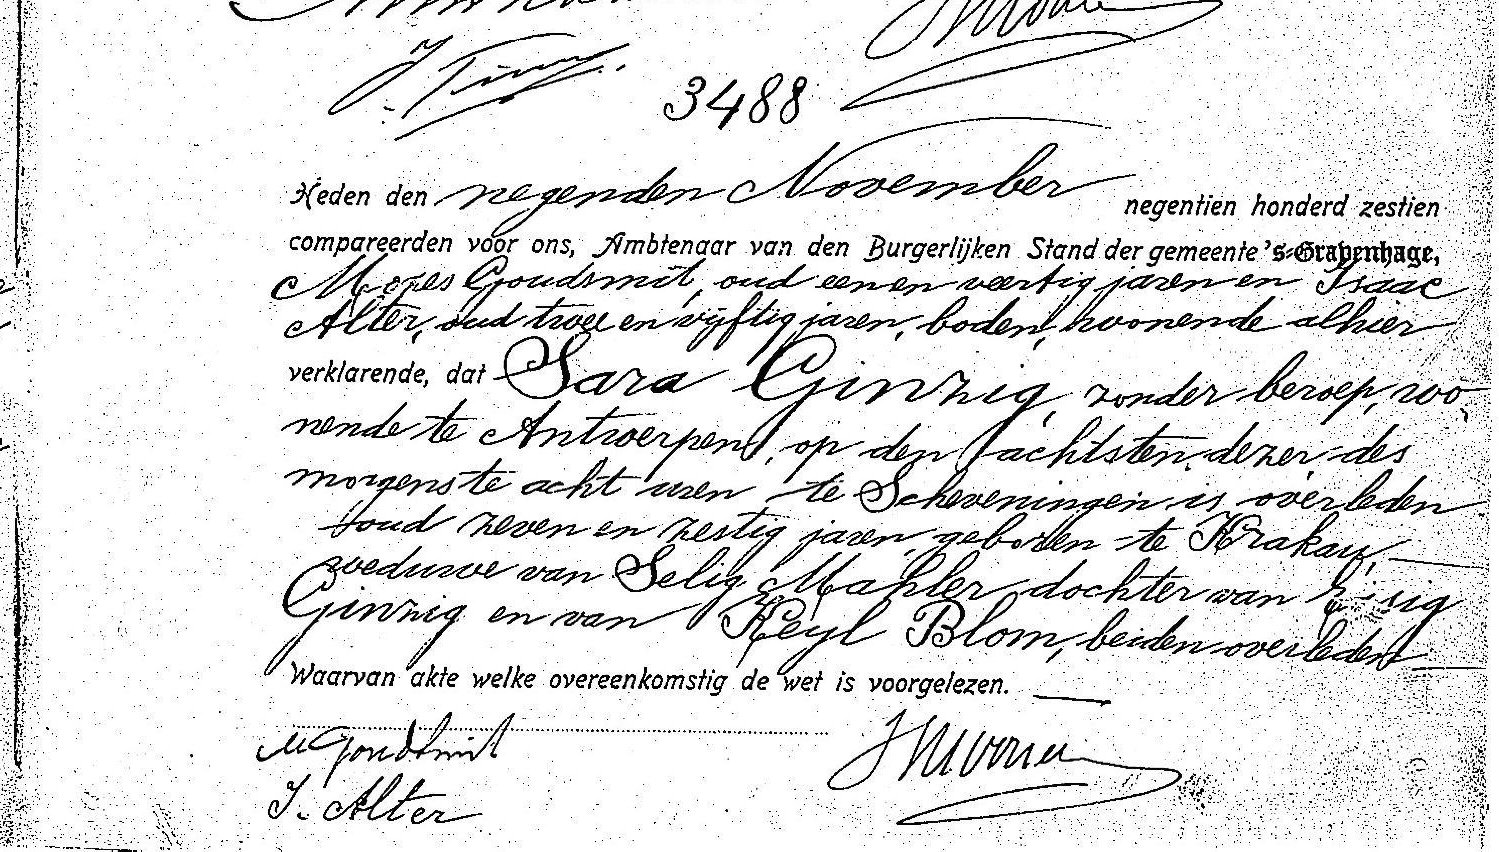 3488
Heden den negenden November negentien honderd zestien
compareerden voor ons, Ambtenaar van den Burgerlijken Stand der gemeente 's-Gravenhage,
Mozes Goudsmit, oud een en veertig jaren en Isaac
Alter, oud twee en vijftig jaren, boden, wonende alhier
verklarende, dat Sara Ginzig, zonder beroep, wo-
nende te Antwerpen, op den achtsten dezer des
morgens te acht uren te Scheveningen is overleden
oud zeven en zestig jaren, geboren te Krakau,
weduwe van Selig Mahler, dochter van
Ginzig en van Keyl Blom, beiden overleden
Waarvan akte welke overeenkomstig de wet is voorgelezen.
M Goudsmit
I. Alter